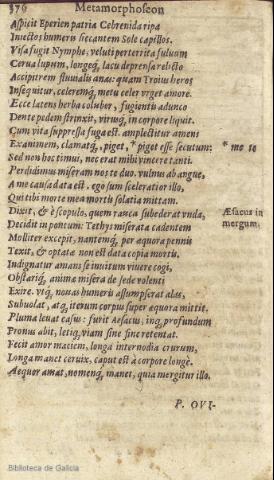 376 Metamorphoseon
Aspicit Eperien patria Cebrenida ripa
Iniectos humeris siccantem Sole capillos.
Visa fugit Nymphe, veluti perterrita fuluum
Cerua lupum, longeq́, lacu deprensa relicto
Accipitrem fluuialis anas: quam Troius heros
Insequitur, celeremq́, metu celer vrget amore.
Ecce latens herba coluber, fugientis adunco
Dente pedem strinxit, virusq́, in corpore liquit.
Cum vita suppressa fuga est. amplectitur amens
Exanimem, clamatq́, piget, * piget esse secutum: * me se
Sed non hoc timui, nec erat mihi vincere tanti.
Perdidimus miseram nos te duo. vulnus ab angue,
A me causa data est, ego sum sceleratior illo,
Qui tibi morte mea mortis solatia mittam.
Dixit, & è scopulo, quem rauca subederat vnda, Æsacus in
Decidit in pontum: Tethys miserata cadentem mergum.
Molliter excepit, nantemq́, per æquora pennis
Texit, & optatæ non est data copia mortis.
Indignatur amans se inuitum viuere cogi,
Obstariq́, animæ misera de sede volenti
Exire. vtq́, nouas humeris assumpserat alas,
Subuolat, atq́, iterum corpus super æquora mittit.
Pluma leuat casus: furit Aesacus, inq́, profundum
Pronus abit, letiq́, viam sine fine retentat.
Fecit amor maciem, longa internodia crurum,
Longa manet ceruix, caput est à corpore longè.
Aequor amat, nomenq́, manet, quia mergitur illo.
P. OVI-
Biblioteca de Galicia